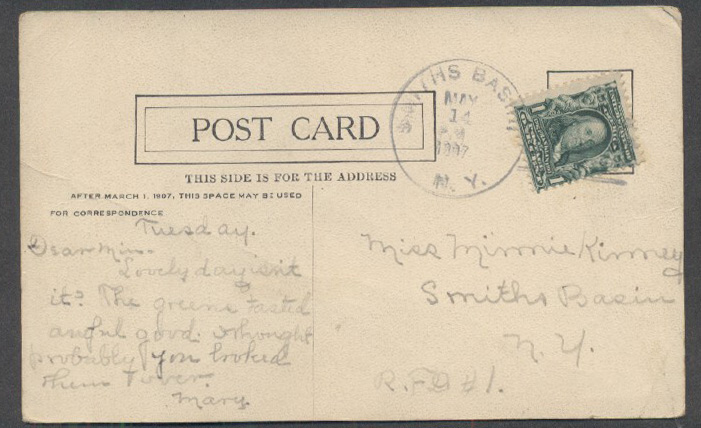 POST CARD
THIS SIDE IS FOR THE ADDRESS
AFTER MARCH 1, 1907, THIS SPACE MAY BE USED
FOR CORRESPONDENCE
SMITHS BASIN
MAY
14
1907
N. Y.
1 1
Tuesday.
Dear Min.
Lovely day isn't
it? The greens tasted
awful good.
probably you looked
them over.
Mary
Miss Minnie Kinney
Smiths Basin
N. Y.
R.F.D #1.